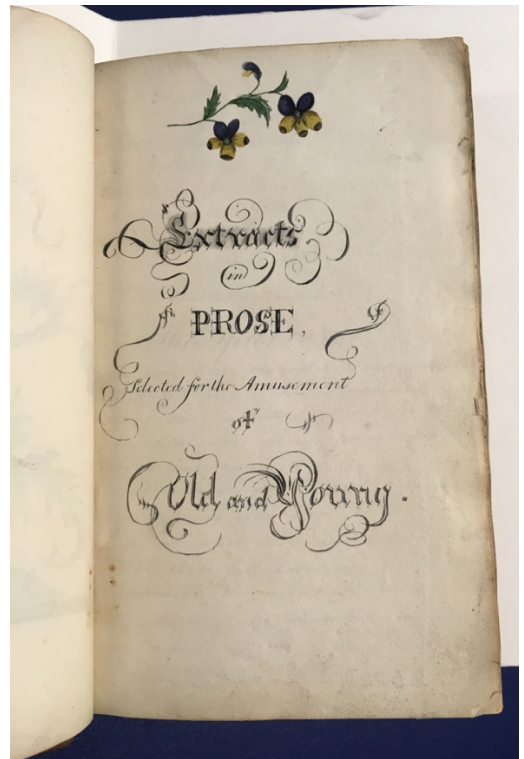 Extracts
in
PROSE,
Selected for the Amusement
of
Old and Young.